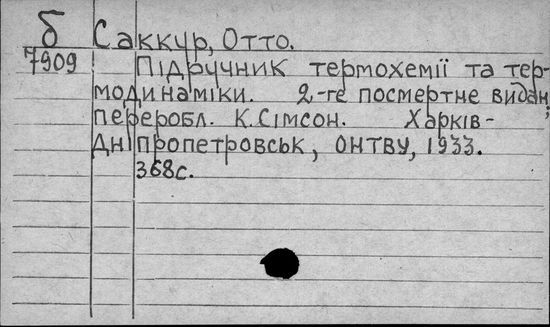 б Саккур, Отто.
7909 Підручник термохемії та тер-
модинаміки. 2-ге посмертне видан,
переробл. К.Сімсон. Харків-
Дніпропетровськ, ОНТВУ, 1933.
368с.